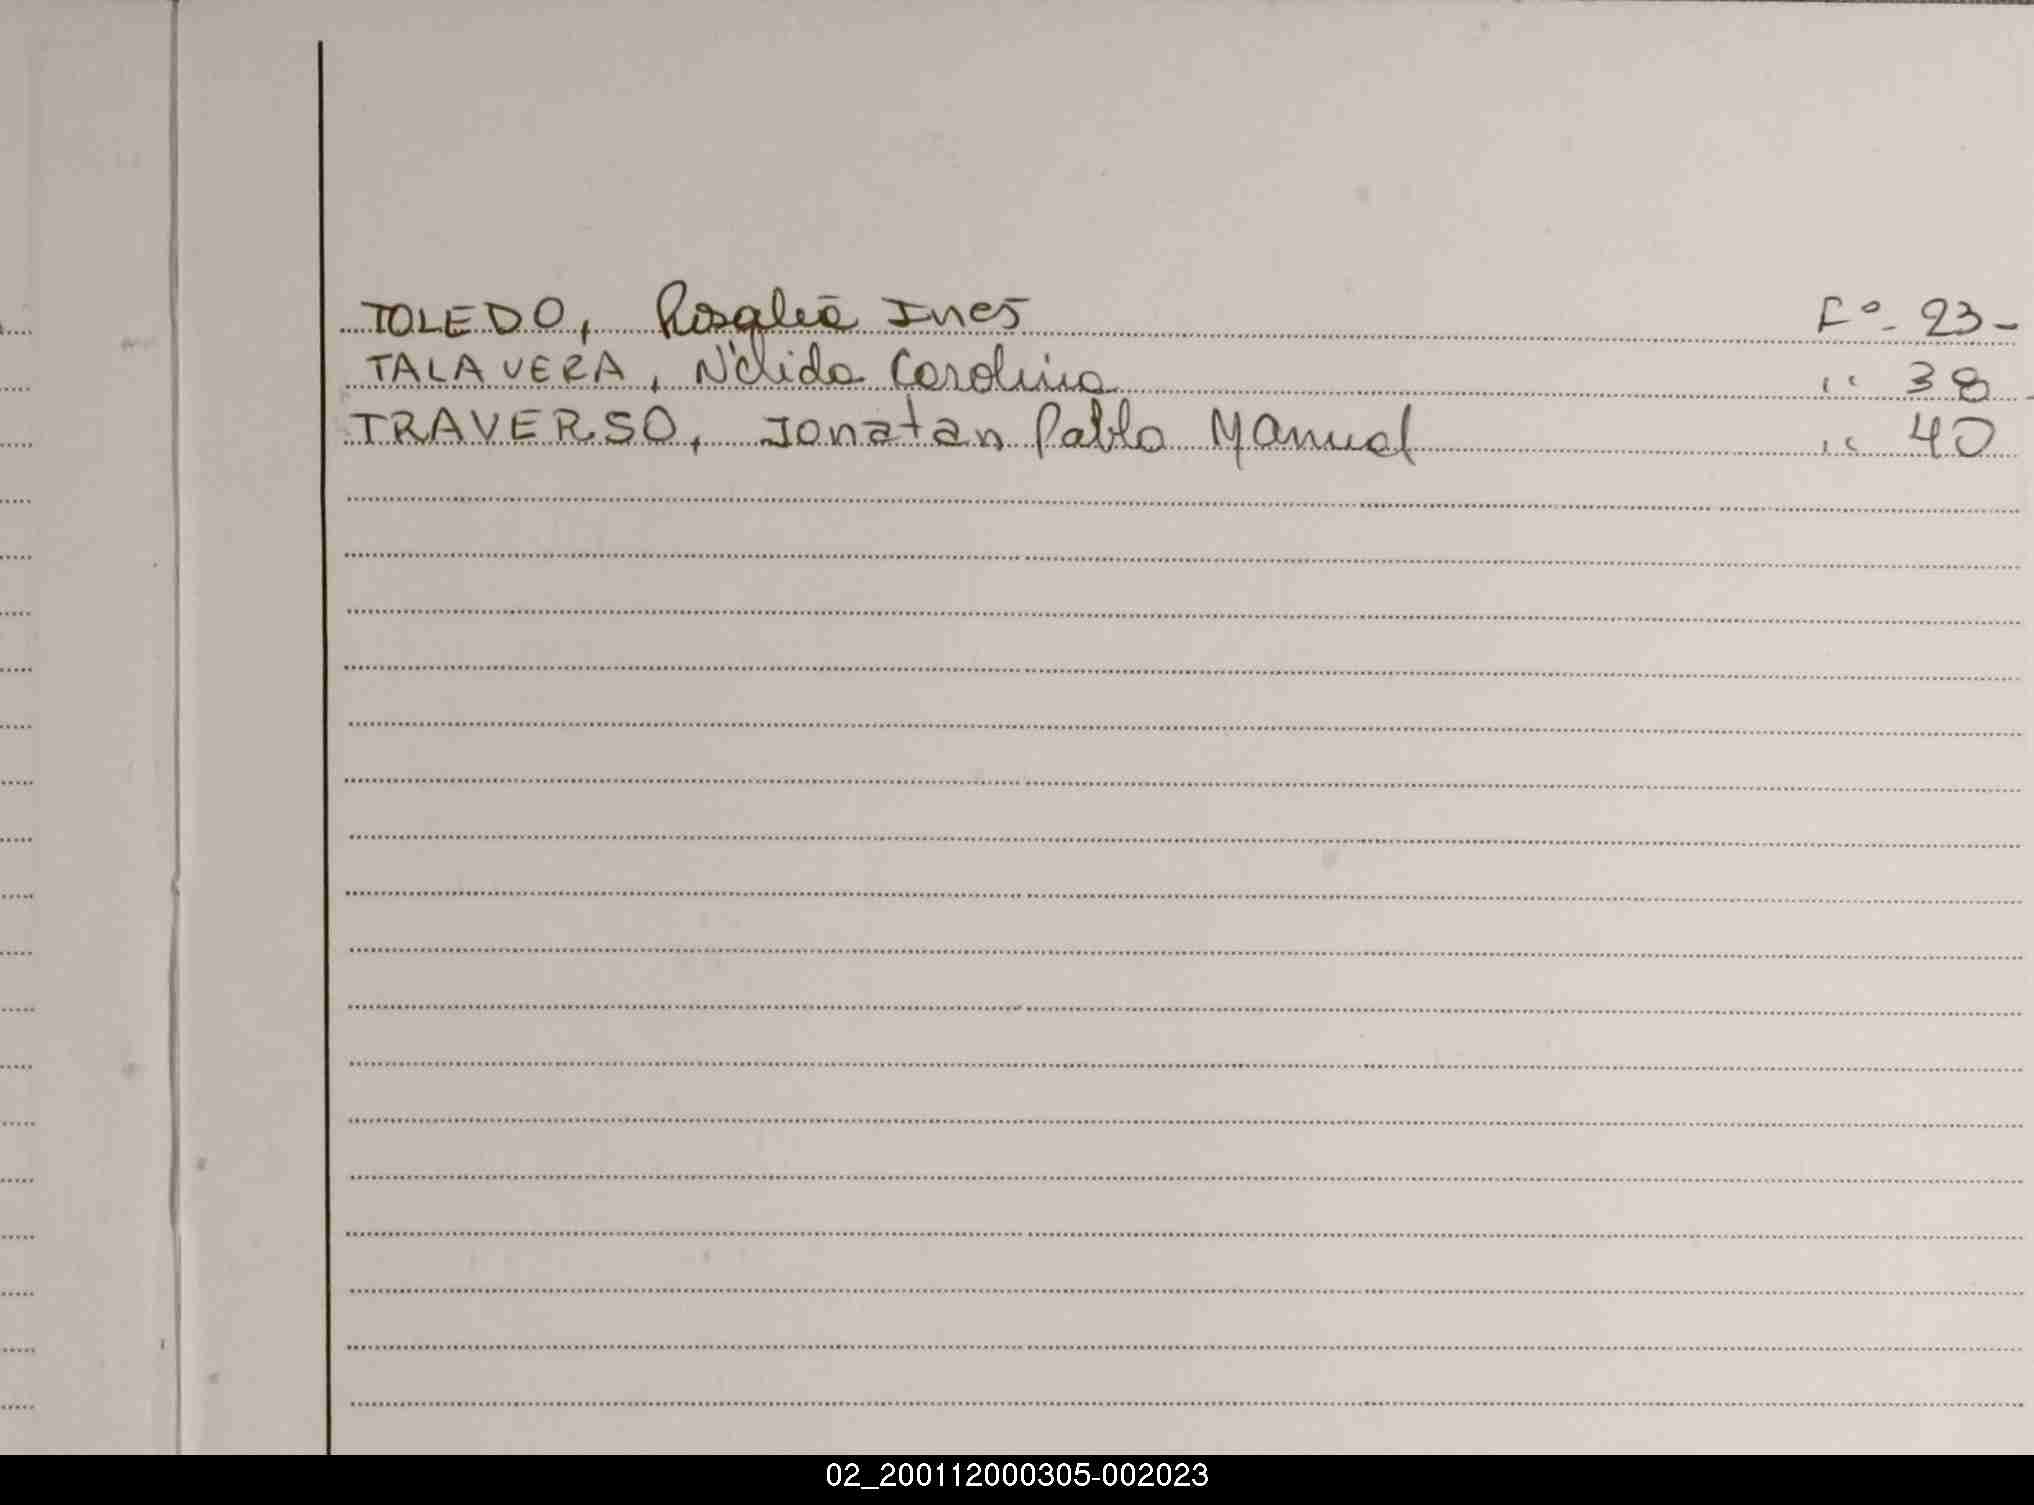 TOLEDO, Rosalía Ines Fº- 23-
TALAVERA, Nélida Carolina " 38
TRAVERSO, Jonatan Pablo Manuel " 40
02_200112000305-002023